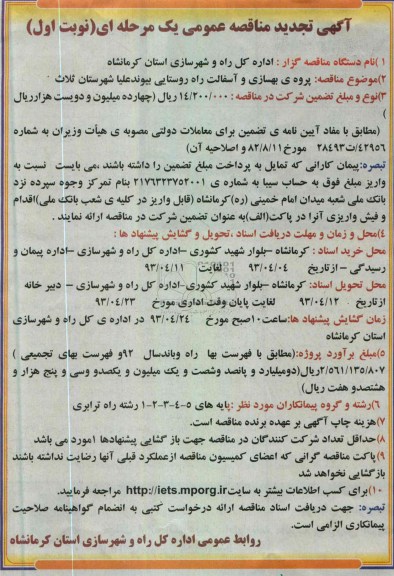 آگهی تجدید مناقصه عمومی یک مرحله ای(نوبت اول)
۱)نام دستگاه مناقصه گزار : اداره کل راه و شهرسازی استان کرمانشاه
۲)موضوع مناقصه: پروه ی بهسازی و آسفالت راه روستایی بیوندعلیا شهرستان ثلاث
۳)نوع و مبلغ تضمین شرکت در مناقصه : ۱۴/۲۰۰/۰۰۰ ریال (چهارده میلیون و دویست هزارریال
)
(مطابق با مفاد آیین نامه ی تضمین برای معاملات دولتی مصوبه ی هیأت وزیران به شماره
۴۲۹۵۶/ت۲۸۴۹۳ مورخ۸۲/۸/۱۱ و اصلاحیه آن)
تبصره:پیمان کارانی که تمایل به پرداخت مبلغ تضمین را داشته باشند ،می بایست نسبت به
واریز مبلغ فوق به حساب سیبا به شماره ی ۲۱۷۶۳۲۳۷۵۲۰۰۱ بنام تمرکز وجوه سپرده نزد
بانک ملی شعبه میدان امام خمینی (ره)کرمانشاه (قابل واریز در کلیه ی شعب بانک ملی)اقدام
و فیش واریزی آنرا در پاکت(الف)به عنوان تضمین شرکت در مناقصه ارائه نمایند .
۴)محل و زمان و مهلت دریافت اسناد ،تحویل و گشایش پیشنهاد ها :
محل خرید اسناد : کرمانشاه –بلوار شهید کشوری –اداره کل راه و شهرسازی –اداره پیمان و
رسیدگی – از تاریخ ۹۳/۰۴/۰۴ لغایت ۹۳/۰۴/۱۱
محل تحویل اسناد: کرمانشاه –بلوار شهید کشوری–اداره کل راه و شهرسازی – دبیر خانه
ازتاریخ ۹۳/۰۴/۱۲ لغایت پایان وقت اداری مورخ ۹۳/۰۴/۲۳
زمان گشایش پیشنهاد ها:ساعت۱۰صبح مورخ ۹۳/۰۴/۲۴ در اداره ی کل راه و شهرسازی
استان کرمانشاه
۵)مبلغ برآورد پروژه:(مطابق با فهرست بها راه وباندسال ۹۲و فهرست بهای تجمیعی )
۲/۵۶۱/۱۳۵/۸۰۷ریال(دومیلیارد و پانصد وشصت و یک میلیون و یکصدو وسی و پنج هزار و
هشتصدو هفت ریال)
۶)رشته و گروه پیمانکاران مورد نظر :پایه های ۵-۴-۳-۲-۱ رشته راه ترابری
۷)هزینه چاپ آگهی بر عهده برنده مناقصه است.
۸)حداقل تعداد شرکت کنندگان در مناقصه جهت باز گشایی پیشنهادها ۱مورد می باشد
۹)پاکت مناقصه گرانی که اعضای کمیسیون مناقصه ازعملکرد قبلی آنها رضایت نداشته باشند
بازگشایی نخواهد شد
۱۰)برای کسب اطلاعات بیشتر به سایت http://iets.mporg.ir مراجعه فرمایید.
تبصره: جهت دریافت اسناد مناقصه ارائه درخواست کتبی به انضمام گواهینامه صلاحیت
پیمانکاری الزامی است.
روابط عمومی اداره کل راه و شهرسازی استان کرمانشاه